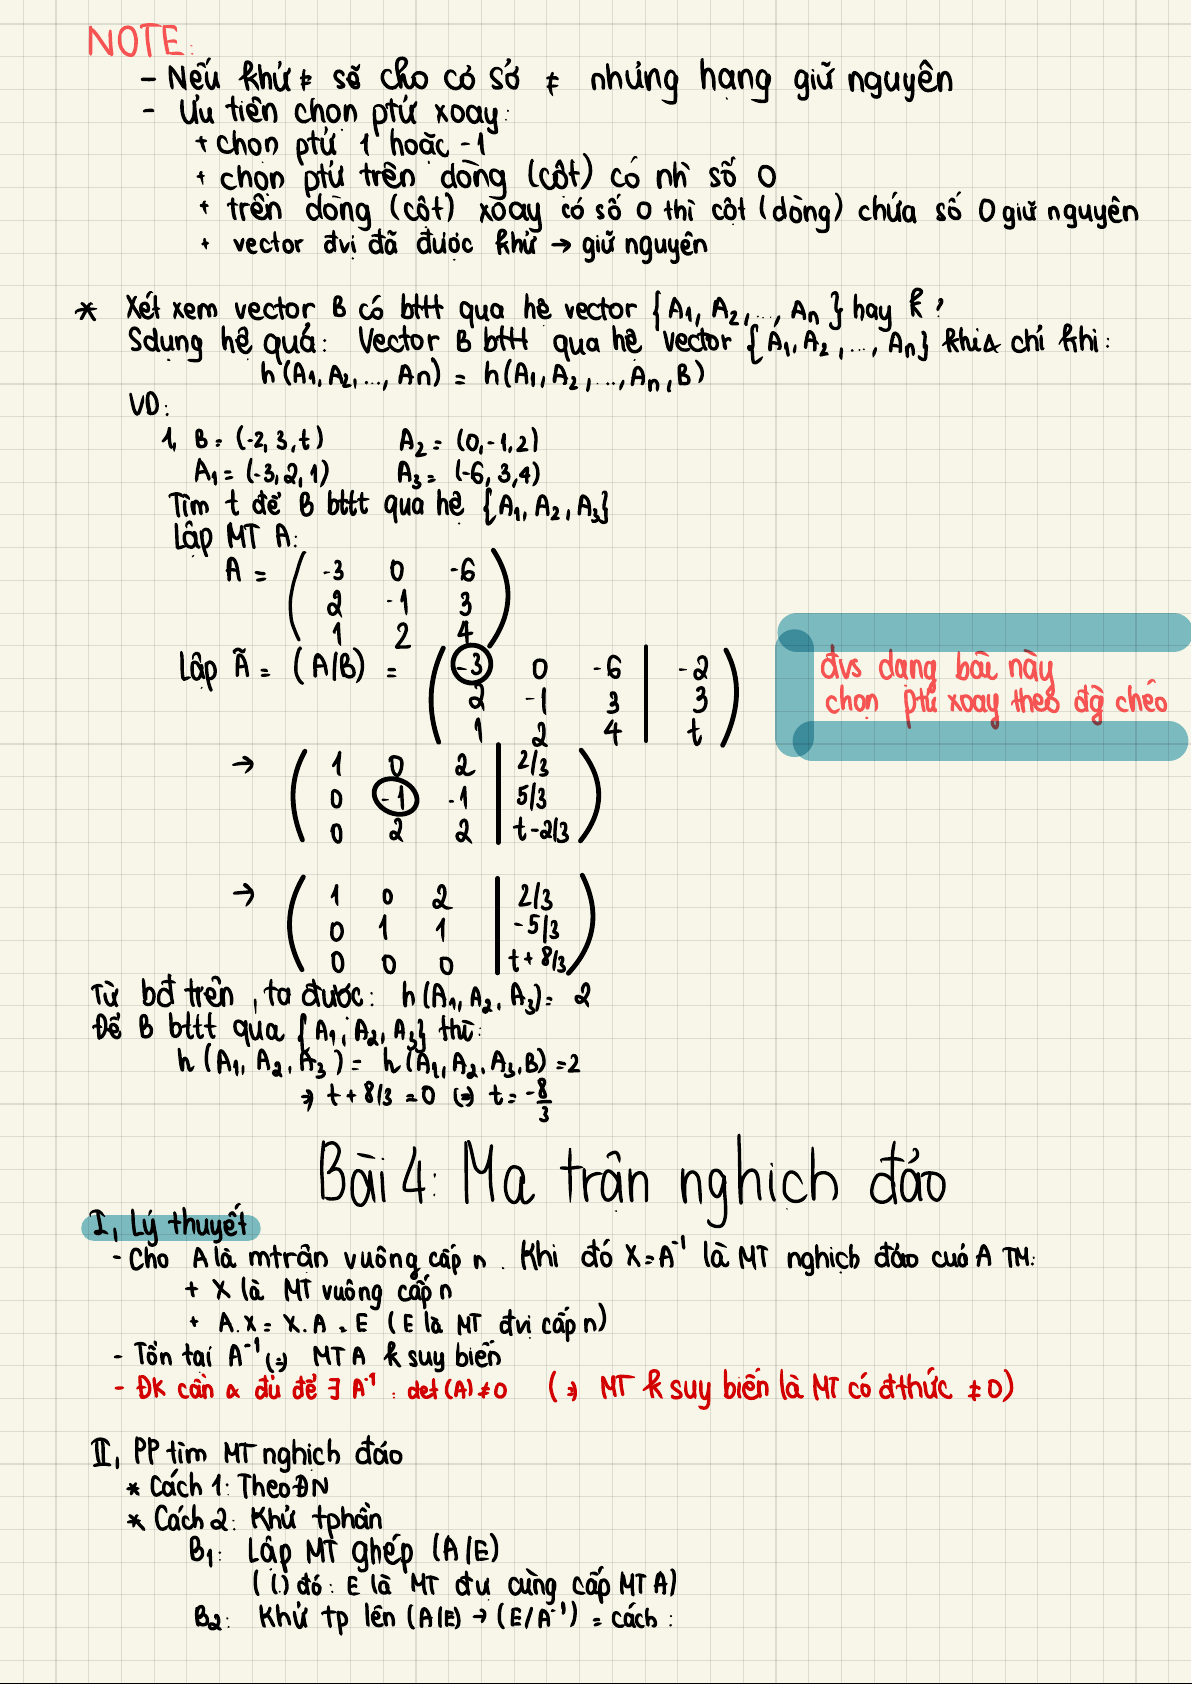 NOTE:
- Nếu khử ≠ sẽ cho cơ sở ≠ nhưng hạng giữ nguyên
- Ưu tiên chọn ptử xoay:
+ chọn ptử 1 hoặc -1
+ chọn ptử trên dòng (cột) có nh` số 0
+ trên dòng (cột) xoay có số 0 thì cột (dòng) chứa số 0 giữ nguyên
+ vector đvị đã được khử → giữ nguyên
* Xét xem vector B có bttt qua hệ vector {A₁, A₂, ..., An} hay k?
Sdụng hệ quả: Vector B bttt qua hệ vector {A₁, A₂, ..., An} khi & chỉ khi:
h(A₁, A₂, ..., An) = h(A₁, A₂, ..., An, B)
VD:
1, B = (-2, 3, t) A₂ = (0, -1, 2)
A₁ = (-3, 2, 1) A₃ = (-6, 3, 4)
Tìm t để B bttt qua hệ {A₁, A₂, A₃}
Lập MT A:
A = ( -3 0 -6
2 -1 3
1 2 4 )
Lập Ã = (A/B) = ( -3 0 -6 | -2
2 -1 3 | 3
1 2 4 | t )
đvs dạng bài này
chọn ptử xoay theo đg chéo
→ ( 1 0 2 | 2/3
0 -1 -1 | 5/3
0 2 2 | t-2/3 )
→ ( 1 0 2 | 2/3
0 1 1 | -5/3
0 0 0 | t+8/3 )
Từ bđ trên, ta được: h(A₁, A₂, A₃) = 2
Để B bttt qua {A₁, A₂, A₃} thì:
h(A₁, A₂, A₃) = h(A₁, A₂, A₃, B) = 2
⇒ t + 8/3 = 0 ⇔ t = -8/3
Bài 4: Ma trận nghịch đảo
I, Lý thuyết
- Cho A là mtrận vuông cấp n. Khi đó X = A⁻¹ là MT nghịch đảo cuả A TM:
+ X là MT vuông cấp n
+ A.X = X.A = E (E là MT đvị cấp n)
- Tồn tại A⁻¹ ⇔ MT A k suy biến
- ĐK cần & đủ để ∃ A⁻¹: det(A) ≠ 0 (⇒ MT k suy biến là MT có đthức ≠ 0)
II, PP tìm MT nghịch đảo
* Cách 1: Theo ĐN
* Cách 2: Khử tphần
B₁: Lập MT ghép (A/E)
( đó: E là MT đv cùng cấp MT A)
B₂: Khử tp lên (A/E) → (E/A⁻¹) = cách: